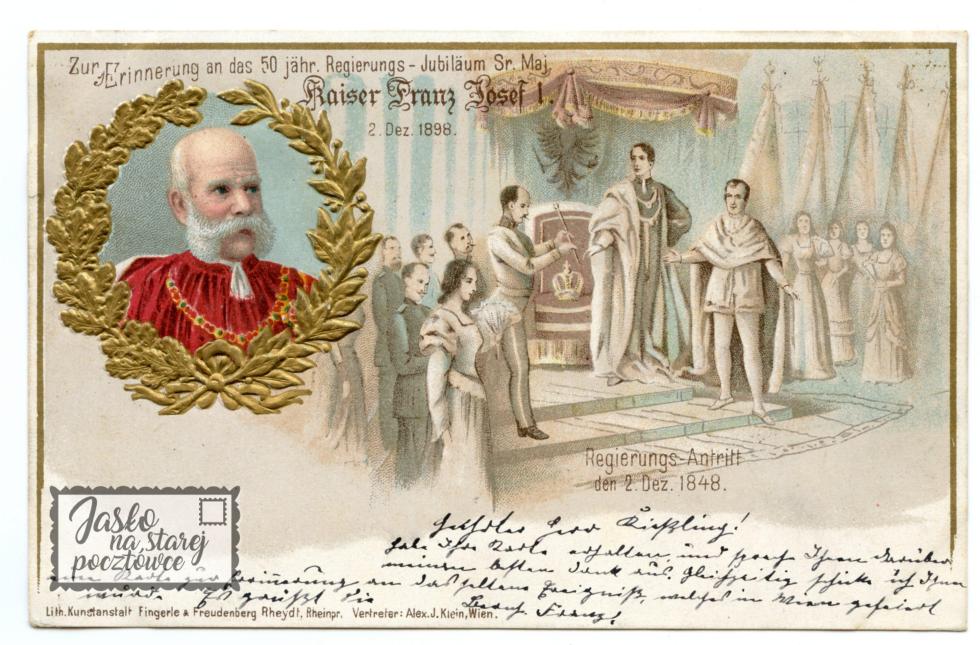 Zur Erinnerung an das 50 jähr. Regierungs-Jubiläum Sr. Maj.
Kaiser Franz Josef I.
2. Dez. 1898.
Regierungs-Antritt
den 2. Dez. 1848.
Geehrter Herr Kießling!
habe Ihre Karte erhalten und spreche Ihnen darüber
meinen besten Dank aus. Gleichzeitig schicke ich Ihnen
eine Karte zur Erinnerung an das seltene Ereigniß welches in Wien gefeiert
wurde. Es grüßt Sie
Franz!
Jaśko
na starej
pocztówce
Lith. Kunstanstalt Fingerle & Freudenberg Rheydt, Rheinpr. Vertreter: Alex. J. Klein, Wien.